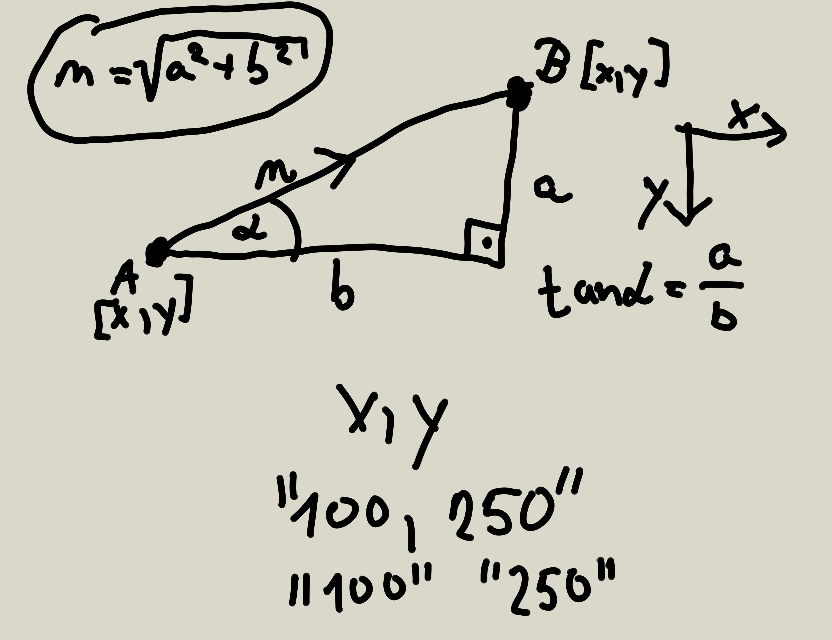 m = √a²+b²
B [x,y]
x
m
a
y
α
A
[x,y]
b
tanα = a/b
x, y
"100, 250"
"100" "250"